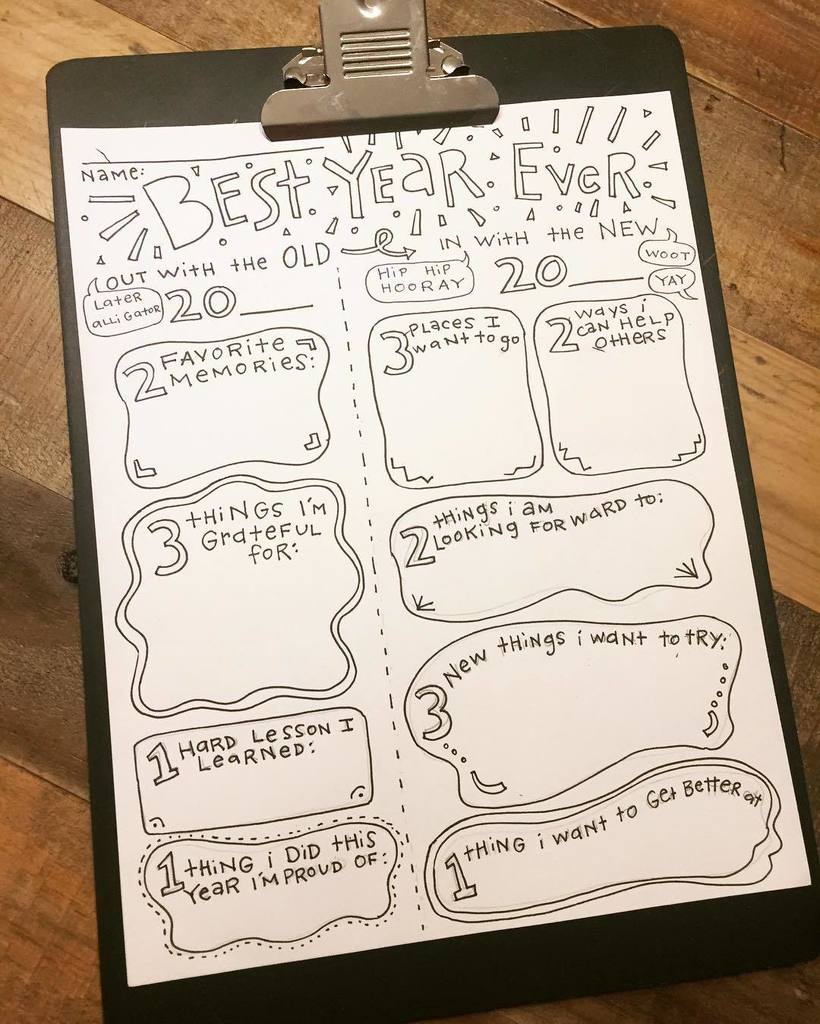 Name:
BEST YEAR EVER
OUT with the OLD
Later
alligator
20
2 FAVORITE
MEMORIES:
3 tHiNGS I'M
GratefUL
foR:
1 HARD LESSON I
Learned:
1 tHiNG i DiD tHiS
Year i'M PROUD OF:
IN with the NEW
WOOT
HiP HiP
HOORAY
20
YAY
3 PLaces I
want to go
2 ways i
can HeLP
OtHERS
2 tHings i am
LOOKING FORWARD to:
3 New tHings i want to tRY:
1 tHiNG i want to Get Better at